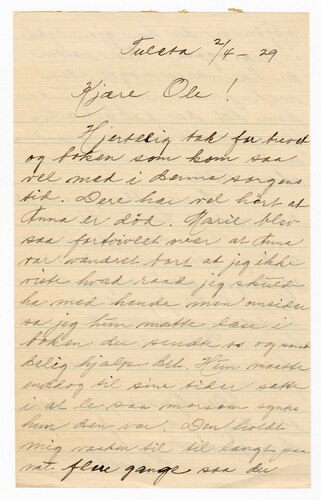 Tulsta 2/4 - 29
Kjære Ole!
Hjertelig tak for brevet
og boken som kom saa
vel med i denne sorgens
tid. Dere har vel hört at
Anna er död. Marie blev
saa fortvivlet over at Anna
var vandret bort at jeg ikke
viste hvad raad jeg skulde
ha med hende men omsider
sa jeg hun matte læse i
boken du sendte os og sand
delig hjalp det. Hun maatte
enddog til sine tider sette
i at le saa morsom synts
hun den var. Den holdt
mig vaaken til til langt paa
nat. flere gange saa du